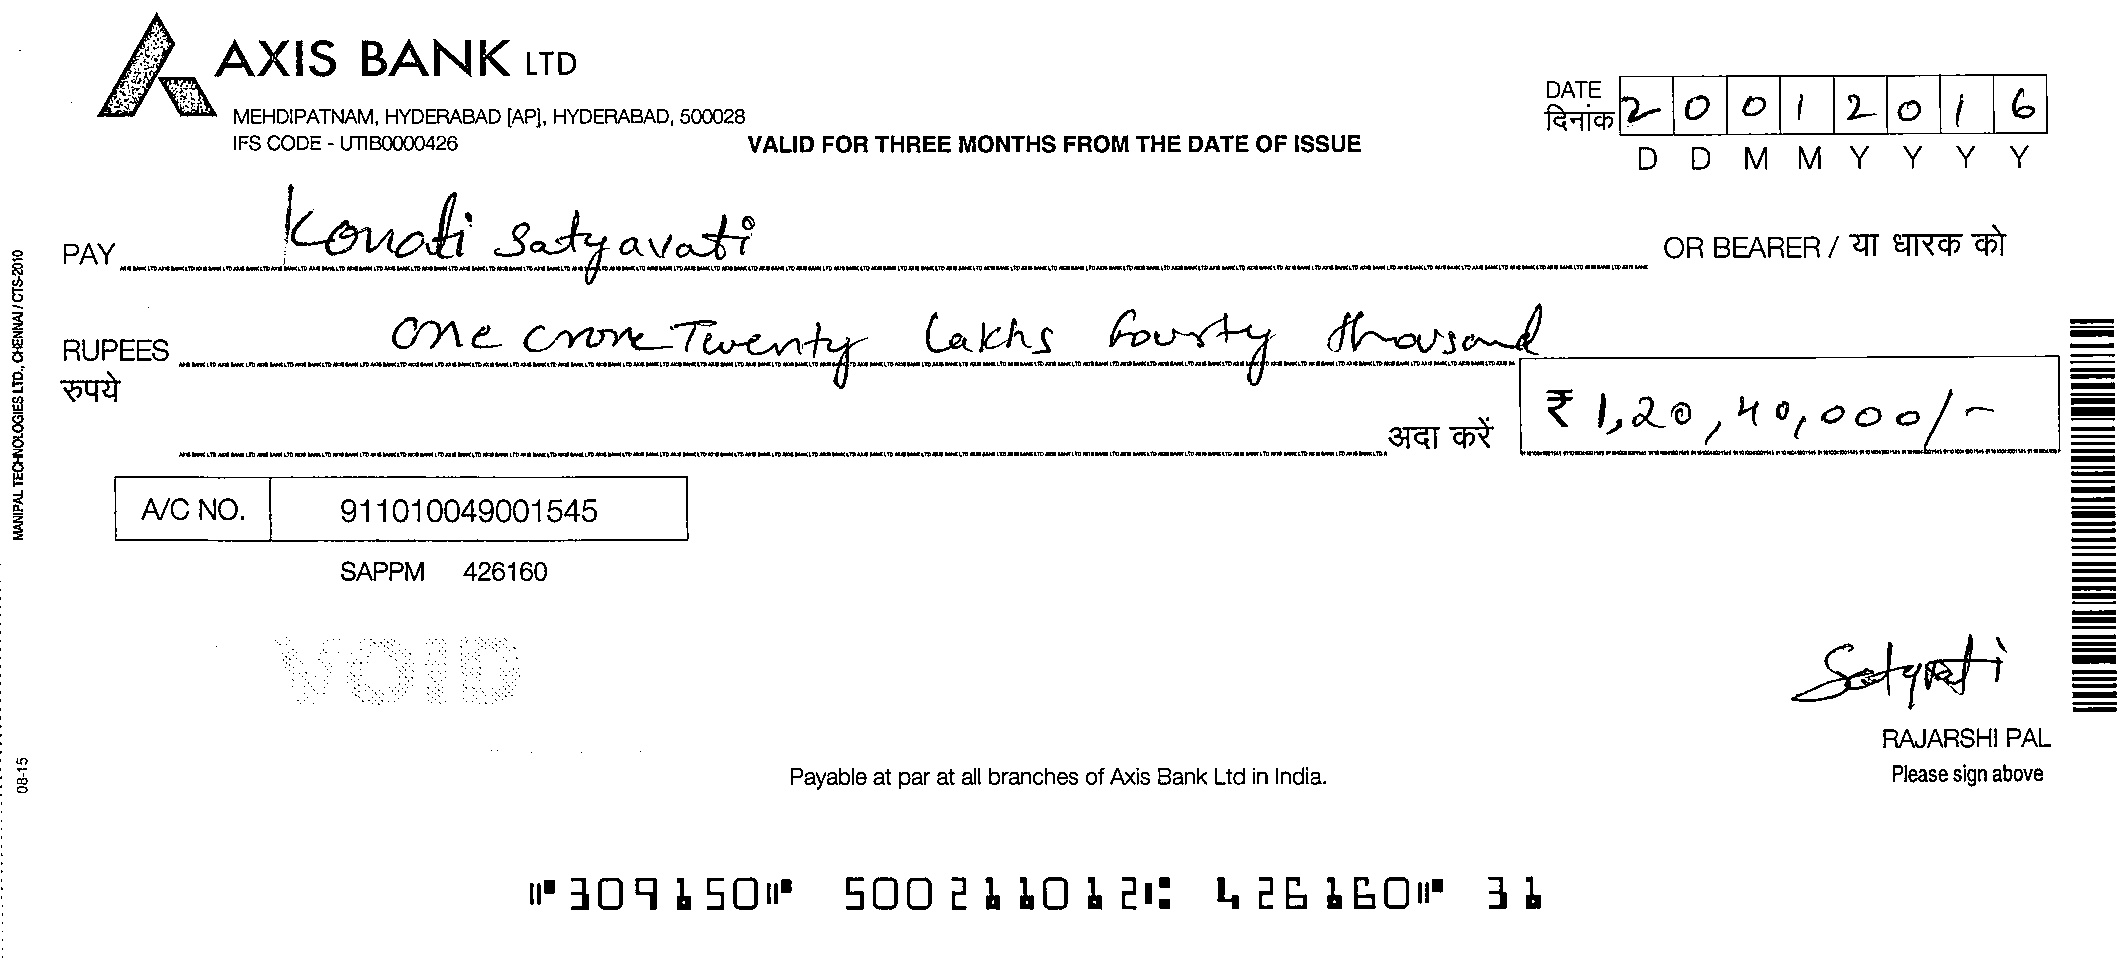 AXIS BANK LTD
MEHDIPATNAM, HYDERABAD [AP], HYDERABAD, 500028
IFS CODE - UTIB0000426
VALID FOR THREE MONTHS FROM THE DATE OF ISSUE
DATE
दिनांक 2 0 0 1 2 0 1 6
D D M M Y Y Y Y
PAY Konati Satyavati OR BEARER / या धारक को
RUPEES One crore Twenty Lakhs fourty thousand
रुपये
अदा करें ₹ 1,20,40,000/-
A/C NO. 911010049001545
SAPPM 426160
VOID
Satyavati
RAJARSHI PAL
Please sign above
Payable at par at all branches of Axis Bank Ltd in India.
MANIPAL TECHNOLOGIES LTD., CHENNAI / CTS-2010
08-15
⑈309150⑈ 500211012⑆ 426160⑈ 31